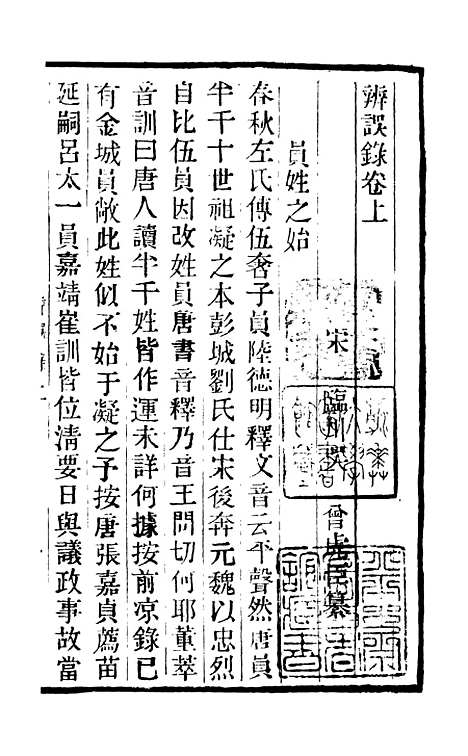 辨誤錄卷上
宋 臨川 曾 臣纂
員姓之始
春秋左氏傳伍奢子員陸德明釋文音云平聲然唐員
半千十世祖凝之本彭城劉氏仕宋後奔元魏以忠烈
自比伍員因改姓員唐書音釋乃音王問切何耶董萃
音訓曰唐人讀半千姓皆作運未詳何據按前凉錄已
有金城員敞此姓似不始于凝之予按唐張嘉貞薦苗
延嗣呂太一員嘉靖崔訓皆位淸要日與議政事故當